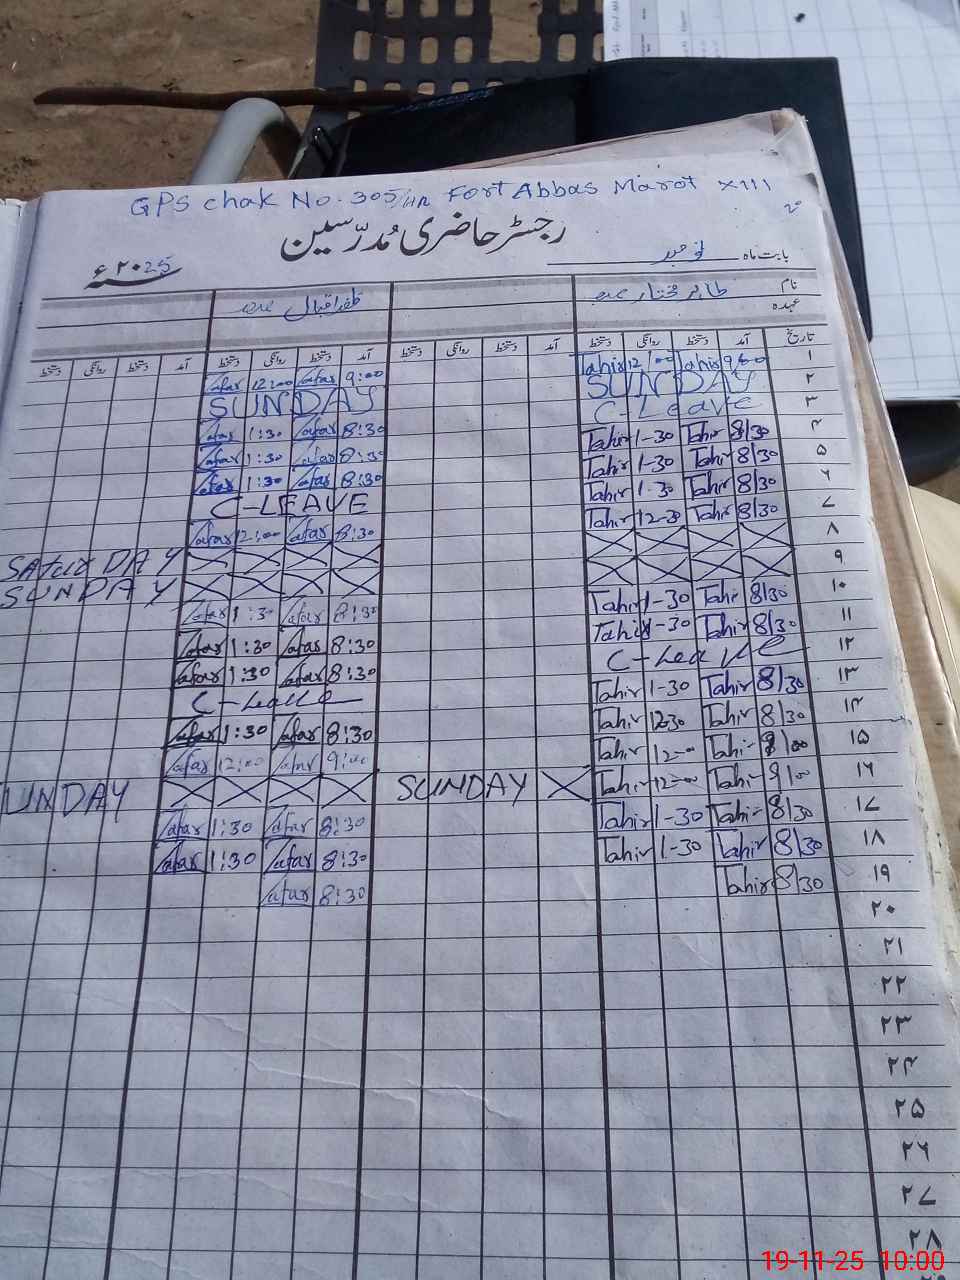 GPS chak No. 305/HR Fort Abbas Marot
رجسٹر حاضری مُدرّسین
بابت ماہ نومبر
سنہ ۲۰25ء
نام طاہر مختار ظفر اقبال
عہدہ
تاریخ آمد دستخط روانگی دستخط آمد دستخط روانگی دستخط آمد دستخط روانگی دستخط آمد دستخط روانگی دستخط
۱ Tahir 12/00 Tahir 9/00 Zafar 12:00 Zafar 9:00
۲ SUNDAY SUNDAY
۳ C-Leave Zafar 1:30 Zafar 8:30
۴ Tahir 1-30 Tahir 8/30 Zafar 1:30 Zafar 8:30
۵ Tahir 1-30 Tahir 8/30 Zafar 1:30 Zafar 8:30
۶ Tahir 1-30 Tahir 8/30 C-LEAVE
۷ Tahir 12-30 Tahir 8/30 Zafar 12:00 Zafar 8:30
۸ SATURDAY
۹ SUNDAY
۱۰ Tahir 1-30 Tahir 8/30 Zafar 1:30 Zafar 8:30
۱۱ Tahir 1-30 Tahir 8/30 Zafar 1:30 Zafar 8:30
۱۲ C-Leave Zafar 1:30 Zafar 8:30
۱۳ Tahir 1-30 Tahir 8/30 C-Leave
۱۴ Tahir 12-30 Tahir 8/30 Zafar 1:30 Zafar 8:30
۱۵ Tahir 12-00 Tahir 9/00 Zafar 12:00 Zafar 9:00
۱۶ Tahir 12-00 Tahir 9/00 SUNDAY X UNDAY
۱۷ Tahir 1-30 Tahir 8/30 Zafar 1:30 Zafar 8:30
۱۸ Tahir 1-30 Tahir 8/30 Zafar 1:30 Zafar 8:30
۱۹ Tahir 8/30 Zafar 8:30
۲۰
۲۱
۲۲
۲۳
۲۴
۲۵
۲۶
۲۷
۲۸
19-11-25 10:00